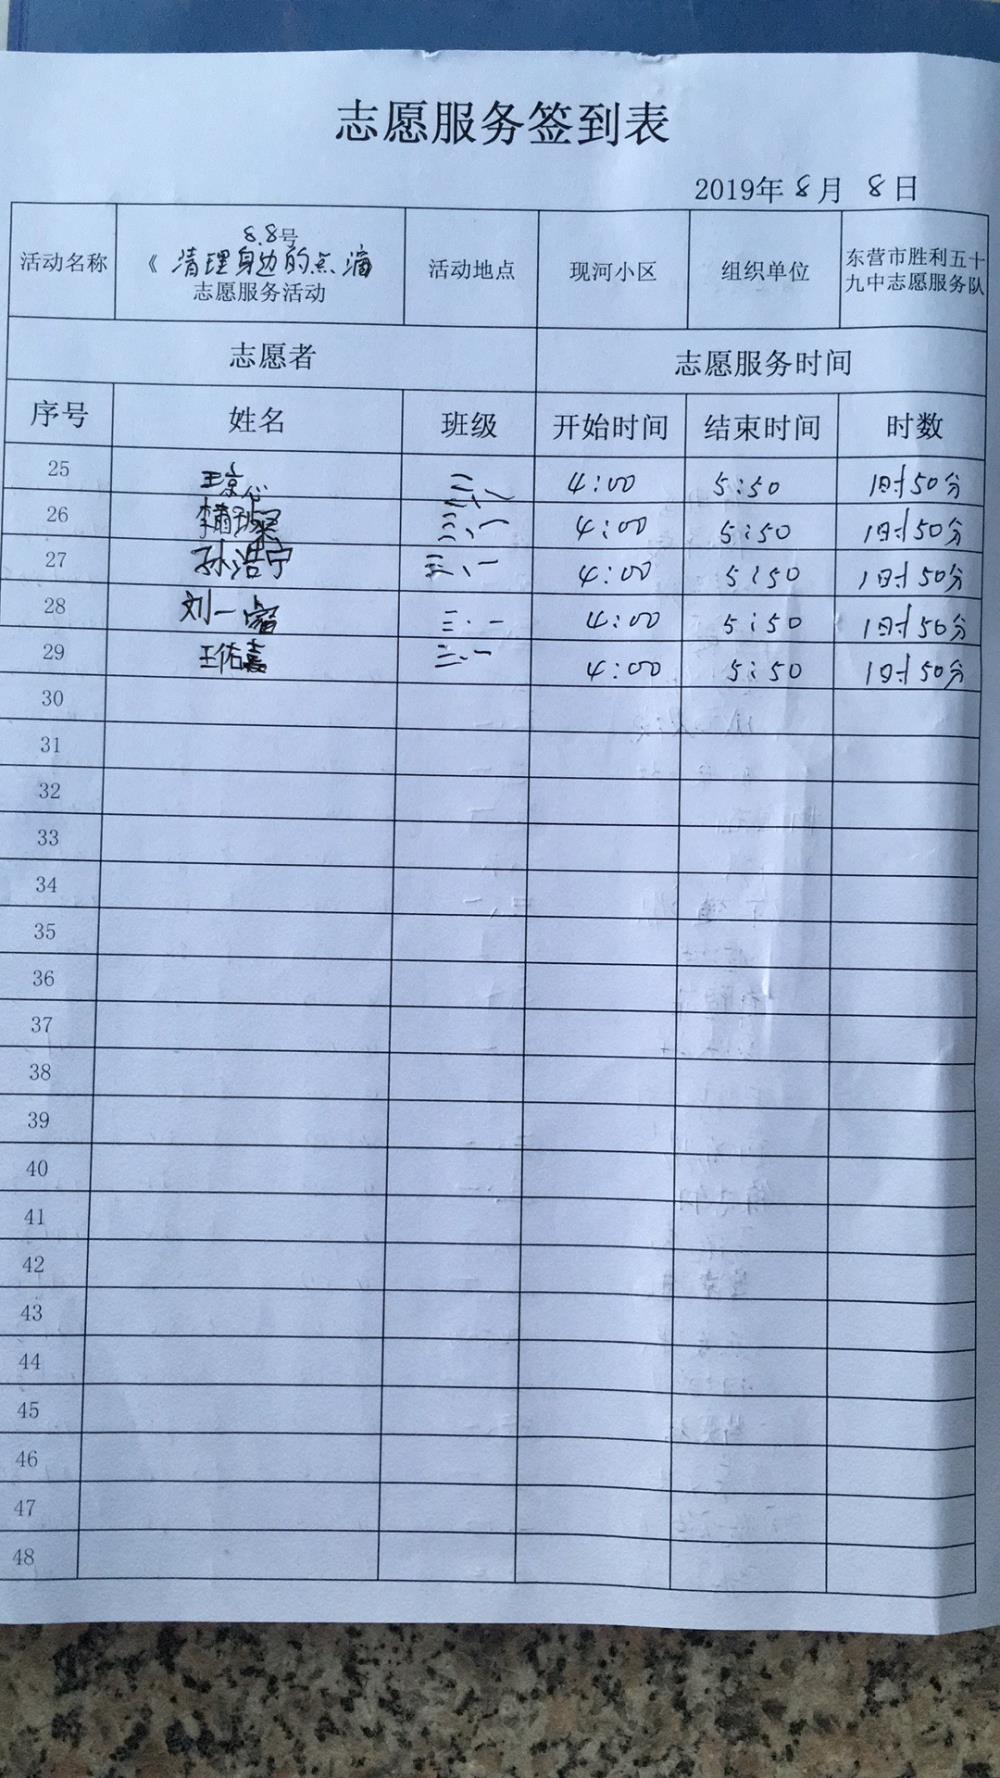 志愿服务签到表
2019年 8月 8日
活动名称 8.8号 活动地点 现河小区 组织单位 东营市胜利五十
《清理身边的点滴 九中志愿服务队
志愿服务活动
志愿者 志愿服务时间
序号 姓名 班级 开始时间 结束时间 时数
25 王京 4:00 5:50 1时50分
26 李 三、一 4:00 5:50 1时50分
27 孙浩宁 三、一 4:00 5:50 1时50分
28 刘一睿 三.一 4:00 5:50 1时50分
29 王佑嘉 三、一 4:00 5:50 1时50分
30
31
32
33
34
35
36
37
38
39
40
41
42
43
44
45
46
47
48